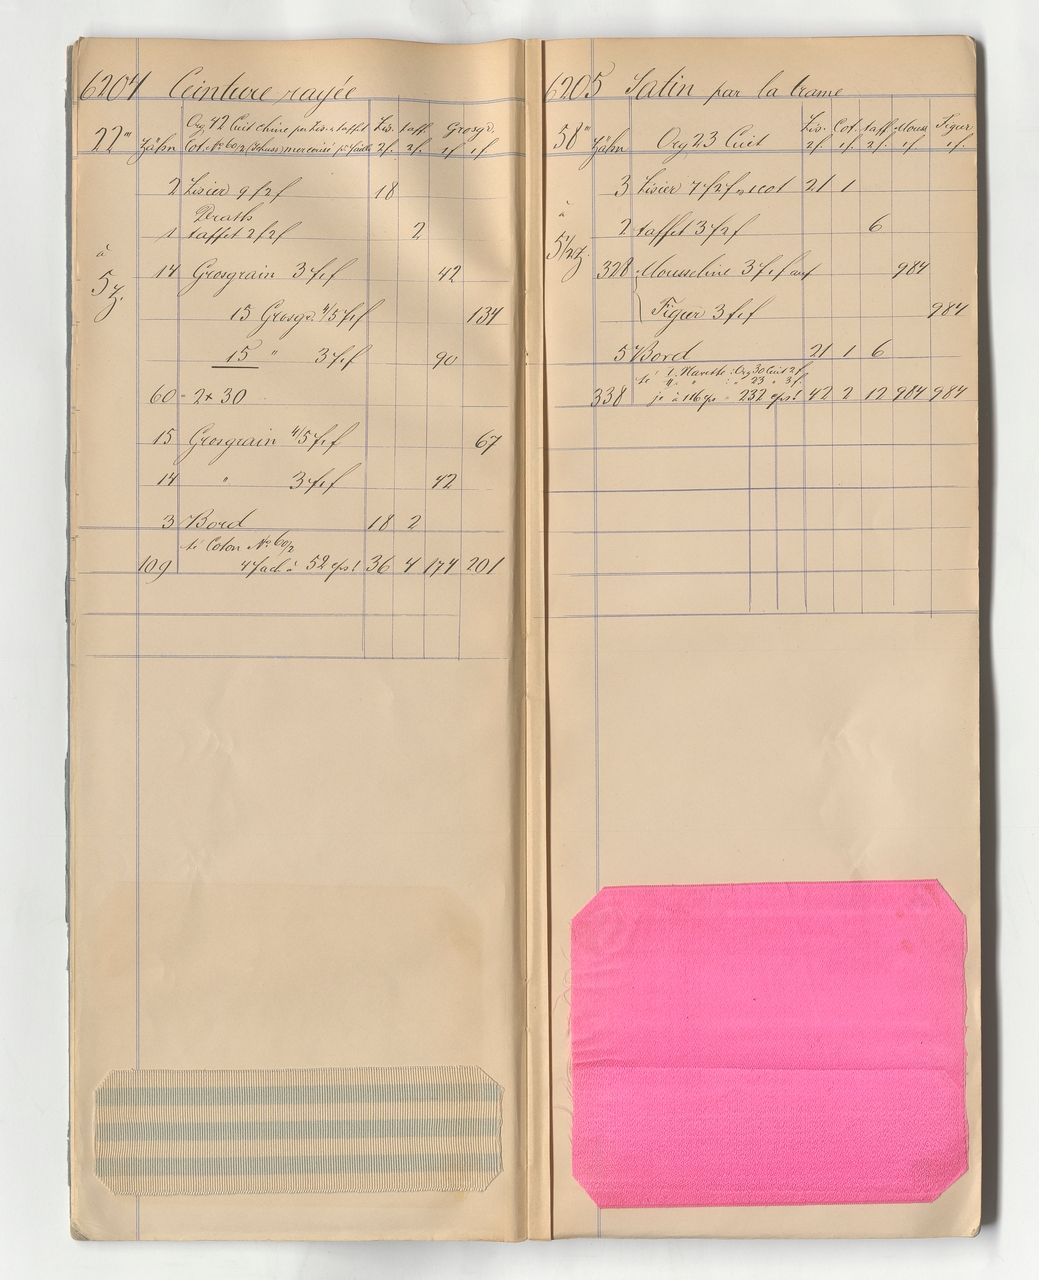 6204 Ceinture rayée
Org 42 Cuit chine per Lis. u. taffet Lis. taff. Grosgr.
22''' Zähn Cot. No 60/2 (Schuss) mercerisé 2f. 2f. 1f 1f
2 Lisier 9 f 2 f 18
Death
1 taffet 2 f 2 f 2
à
14 Grosgrain 3 f 1 f 42
5 Z.
15 Grosgr. 4/5 f 1 f 134
15 " 3 f 1 f 90
60 = 2 x 30
15 Grosgrain 4/5 f 1 f 67
14 " 3 f 1 f 42
3 Bord 18 2
Coton No 60/2
109 4fach à 52 eps! 36 4 174 201
6205 Satin par la trame
Lis. Cot. taff Mouss Figur
58''' Zähn Org 23 Cuit 2f. 1f. 2f. 1f. 1f.
3 Lisier 7 f 2 f u 1 cot 21 1
à
2 taffet 3 f 2 f 6
5 1/2 Z.
328 Mousseline 3 f 1 f auf 984
Figur 3 f 1 f 984
5 Bord 21 1 6
1. Navette: Org 30 Cuit 2 f.
11. " : " 23 " 3 f.
338 je à 116 ps = 232 eps! 42 2 12 984 984